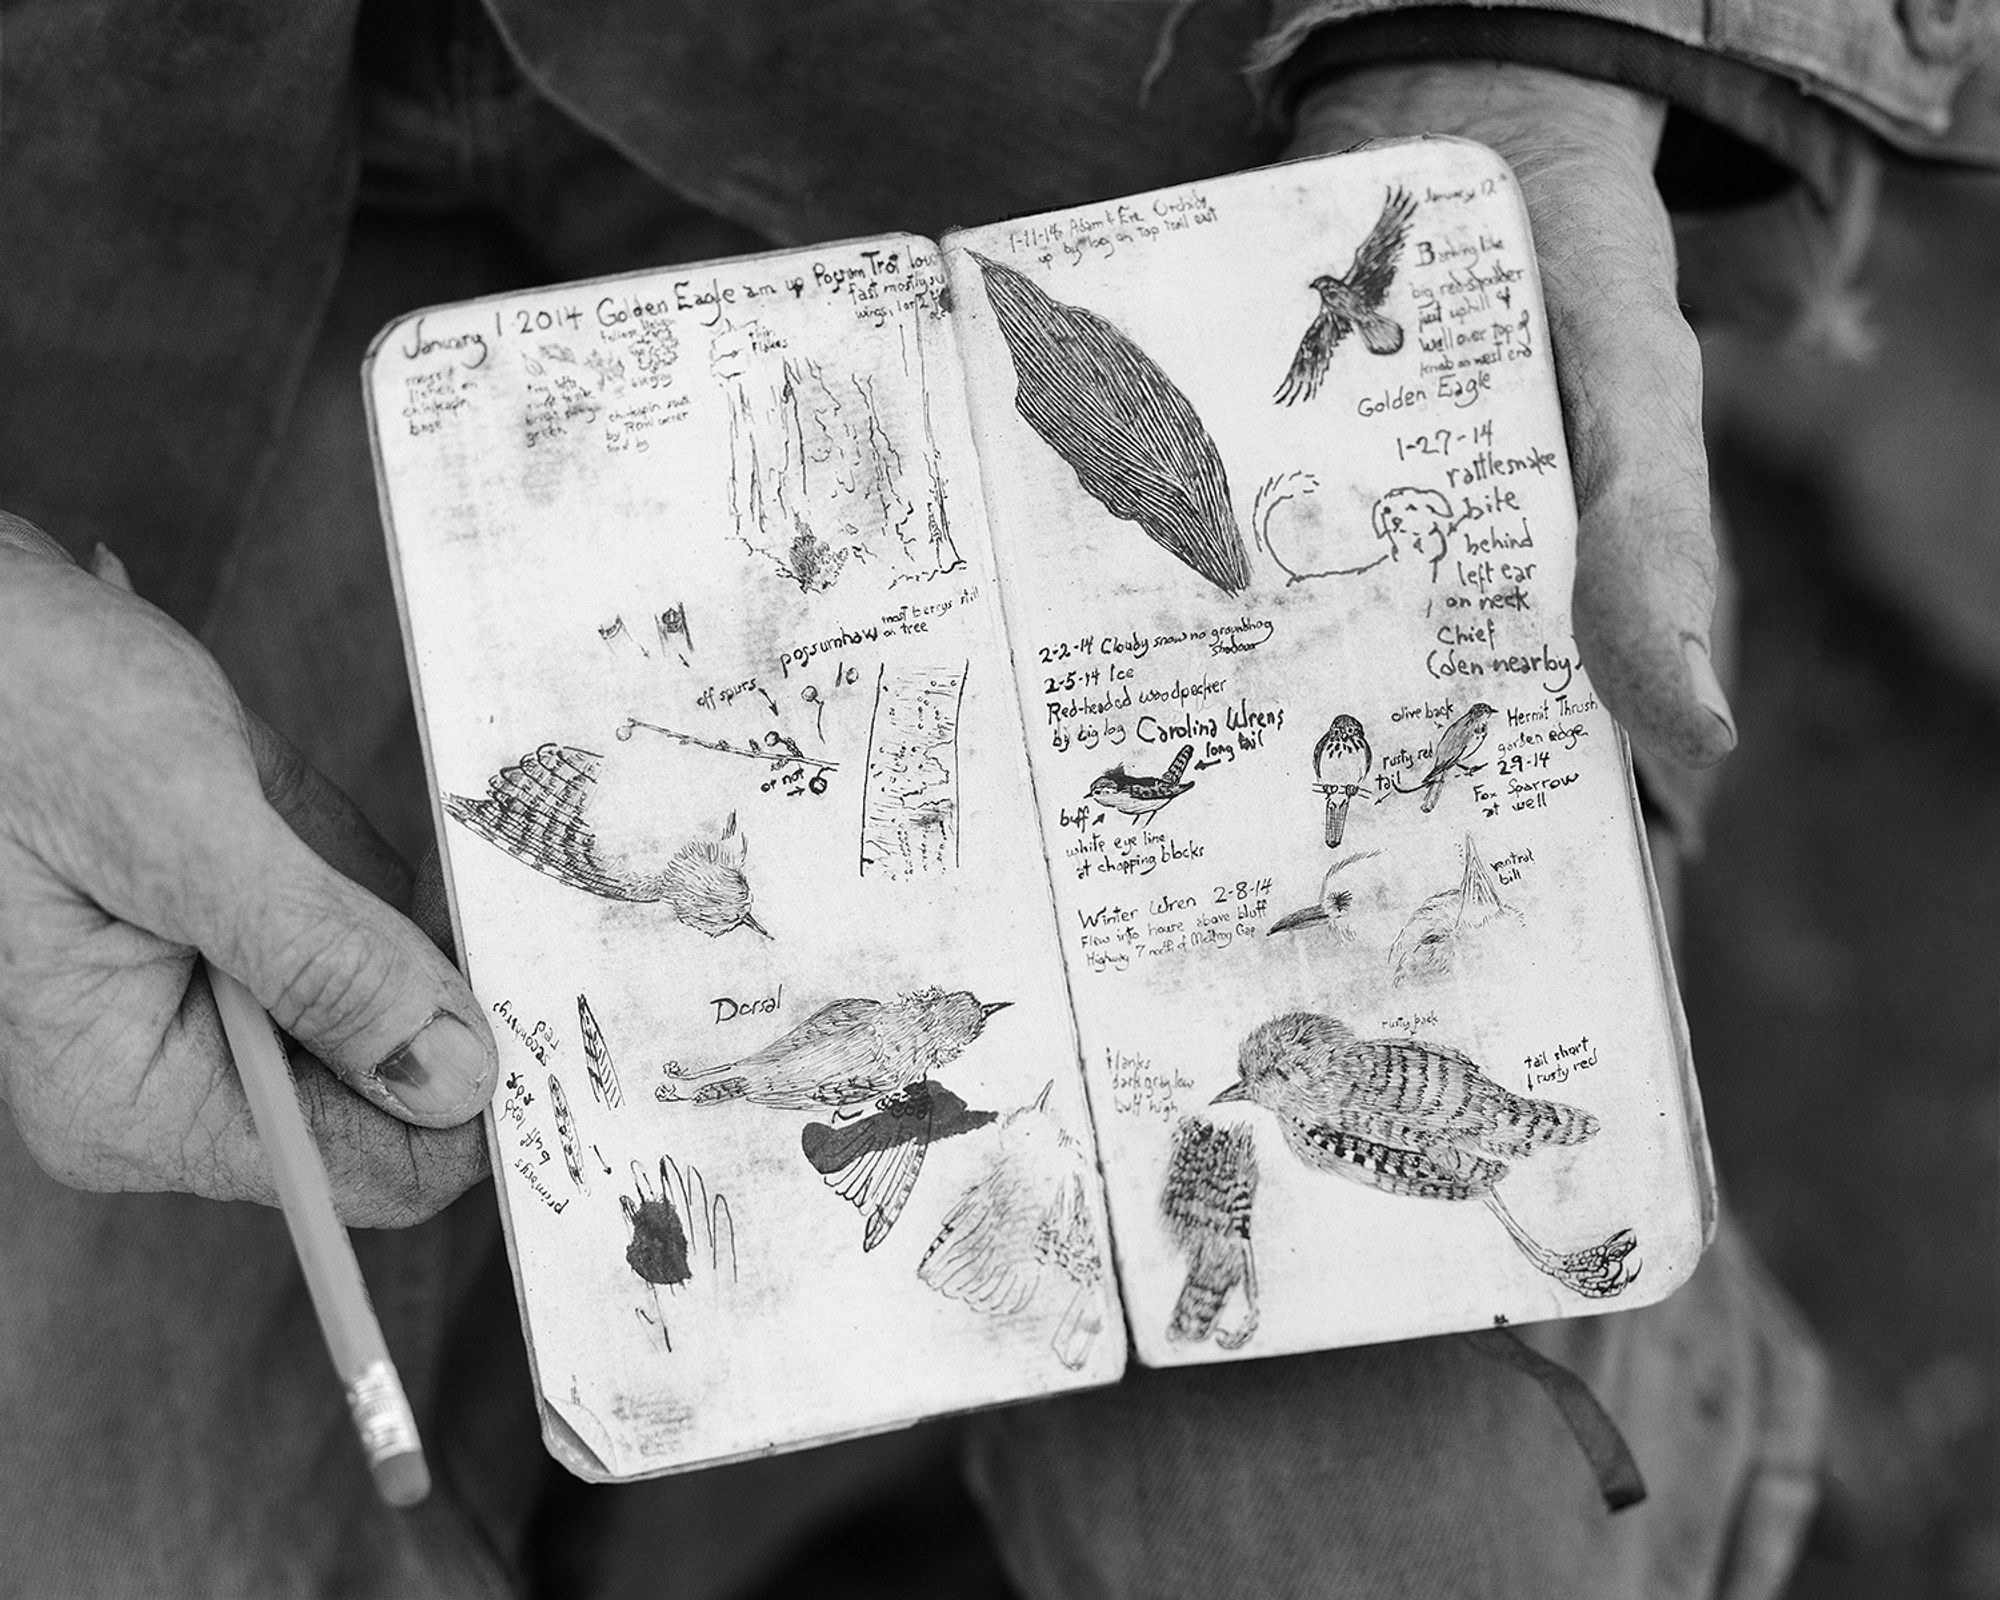 January 1 2014 Golden Eagle am up Possum Trot low
fast mostly
wings, 1 or 2
thin
flakes
on
chinkapin
base
green
chinkapin south
by ROW corner
possumhaw most berrys still
on tree
off spurs
or not
Dorsal
secondarys
red
edge
buff
primarys
1-11-14 Adam & Eve Orchids
up by log on top trail east
January 12th
Barking like
big red shoulder
just uphill of
well over top of
knob on west end
Golden Eagle
1-27-14
rattlesnake
bite
behind
left ear
on neck
Chief
(den nearby)
2-2-14 Cloudy snow no groundhog
shadow
2-5-14 Ice
Red-headed woodpecker
by big log Carolina Wrens
long tail
buff
white eye line
at chopping blocks
olive back
rusty red
tail
Hermit Thrush
garden edge
2-9-14
Fox Sparrow
at well
Winter Wren 2-8-14
Flew into house above bluff
Highway 7 north of Gap
ventral
bill
rusty back
flanks
dark gray low
buff high
tail short
& rusty red